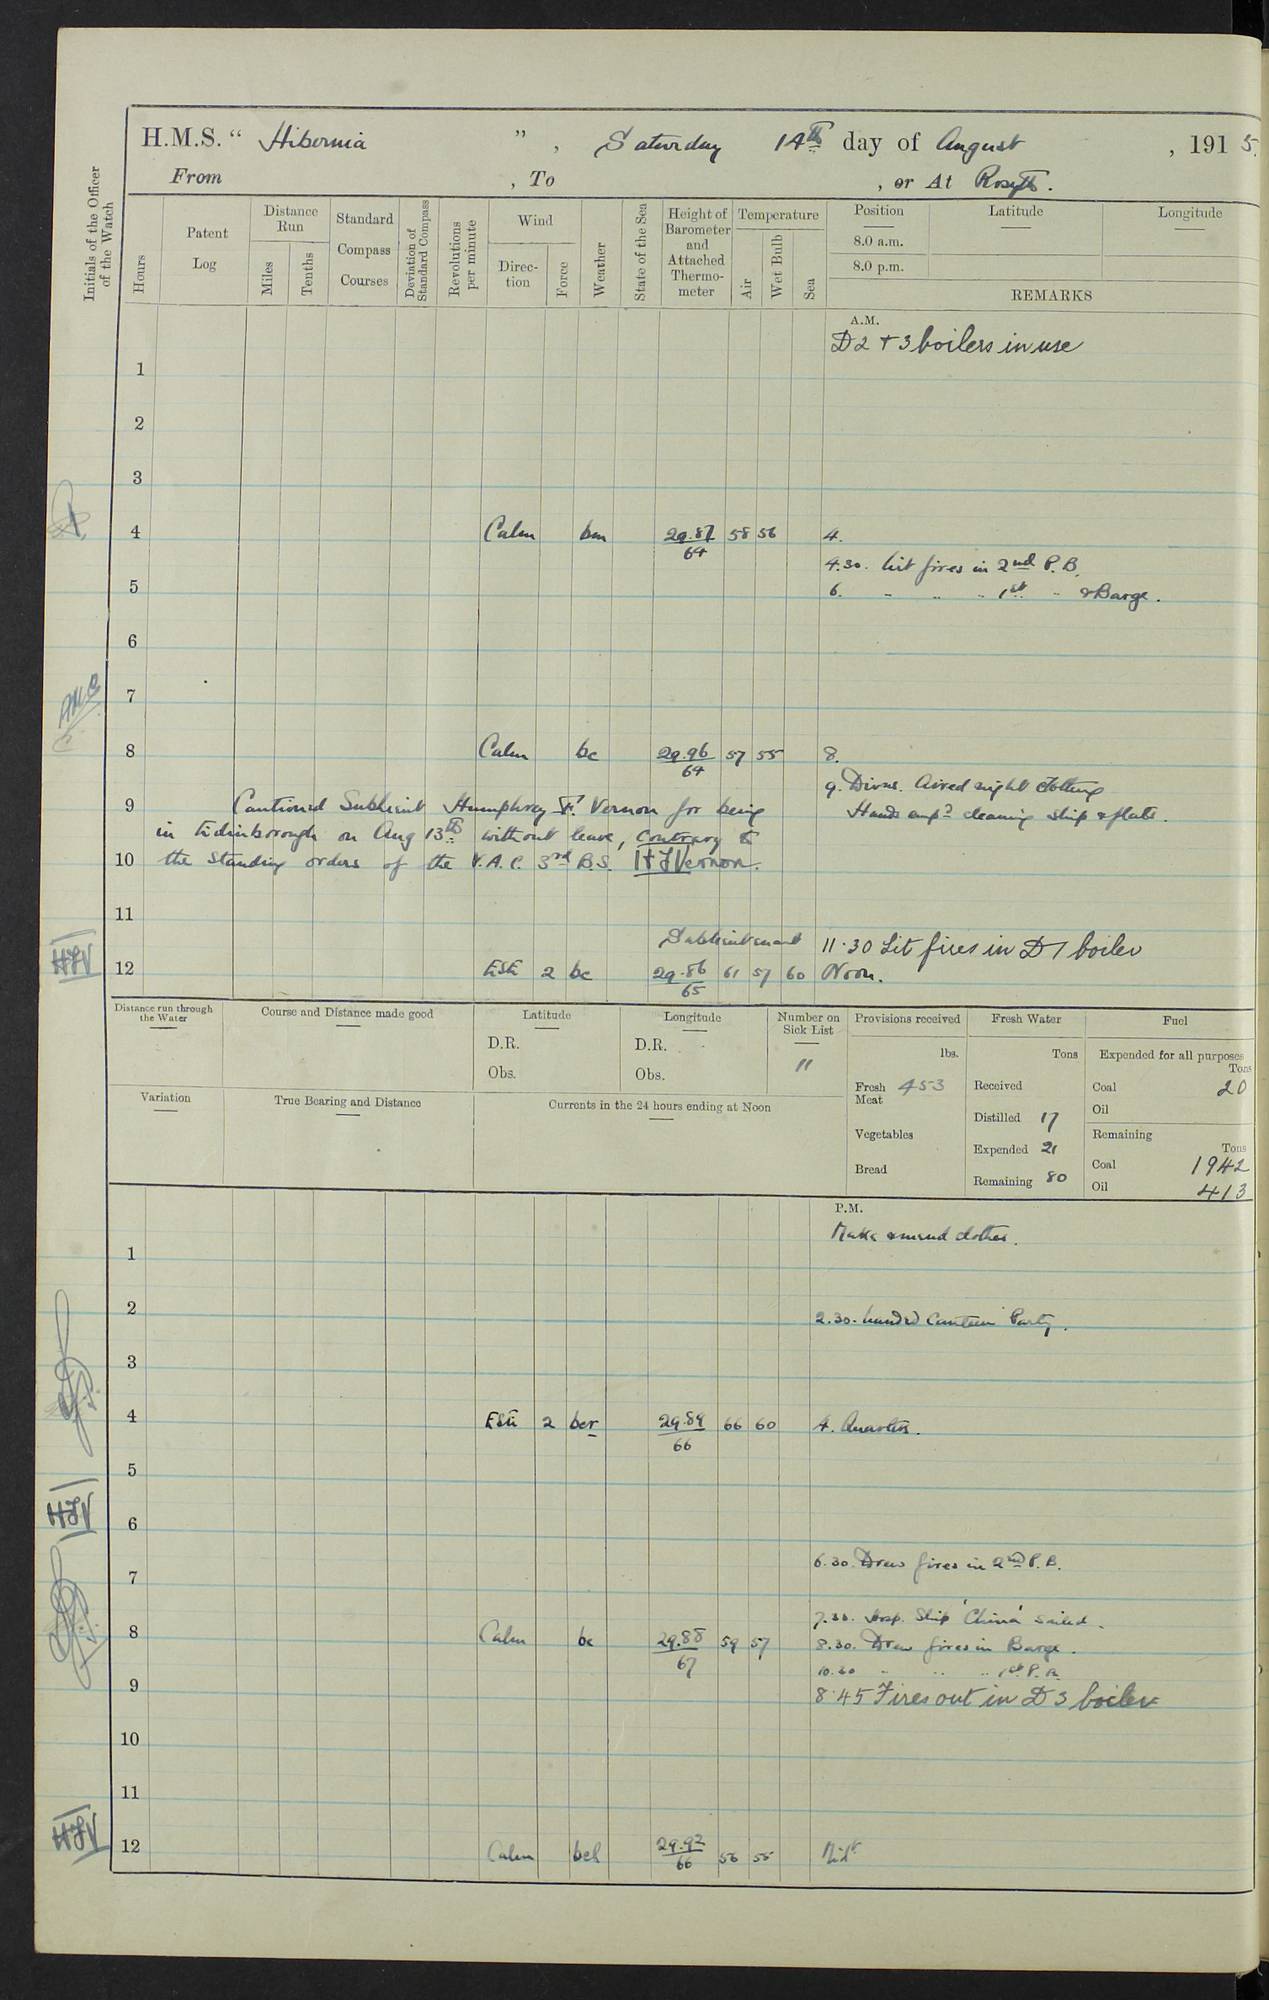 H.M.S. “ Hibernia ”, Saturday 14th day of August, 1915.
From , To , or At Rosyth.
Initials of the Officer of the Watch
Hours
Patent Log
Distance Run
Miles
Tenths
Standard Compass Courses
Deviation of Standard Compass
Revolutions per minute
Wind
Direc-tion
Force
Weather
State of the Sea
Height of Barometer and Attached Thermo-meter
Temperature
Air
Wet Bulb
Sea
Position
8.0 a.m.
8.0 p.m.
Latitude
Longitude
REMARKS
A.M.
D2 + 3 boilers in use
1
2
3
4 Calm bm 29.87/64 58 56 4.
4.30. Lit fires in 2nd P.B.
5 6. " " " 1st " & Barge.
6
AMC
7
8 Calm bc 29.96/64 57 55 8.
9. Divns. Aired night clothing
9 Hands emp? cleaning ship & flats.
Cautioned Sublieut Humphrey F. Vernon for being
in Edinborough on Aug 13th without leave, contrary to
10 the standing orders of the V.A.C. 3rd B.S. H F Vernon.
11
Sublieutenant
11.30 Lit fires in D1 boiler
HFV
12 ESE 2 bc 29.86/65 61 57 60 Noon.
Distance run through the Water
Course and Distance made good
Latitude
D.R.
Obs.
Longitude
D.R.
Obs.
Number on Sick List
11
Provisions received
lbs.
Fresh Meat 453
Vegetables
Bread
Fresh Water
Tons
Received
Distilled 17
Expended 21
Remaining 80
Fuel
Expended for all purposes
Tons
Coal 20
Oil
Remaining
Tons
Coal 1942
Oil 413
Variation
True Bearing and Distance
Currents in the 24 hours ending at Noon
P.M.
Make & mend clothes.
1
2
2.30. Landed Canteen Party.
3
4 ESE 2 bcr 29.89/66 66 60 4. Quarters.
5
HFV
6
6.30. Drew fires in 2nd P.B.
7
7.30. Hosp. Ship 'China' sailed.
8 Calm bc 29.88/67 59 57 8.30. Drew fires in Barge.
10.30 " " " 1st P.B.
9
8.45 Fires out in D3 boiler
10
11
HFV
12 Calm bcl 29.92/66 56 55 Midt